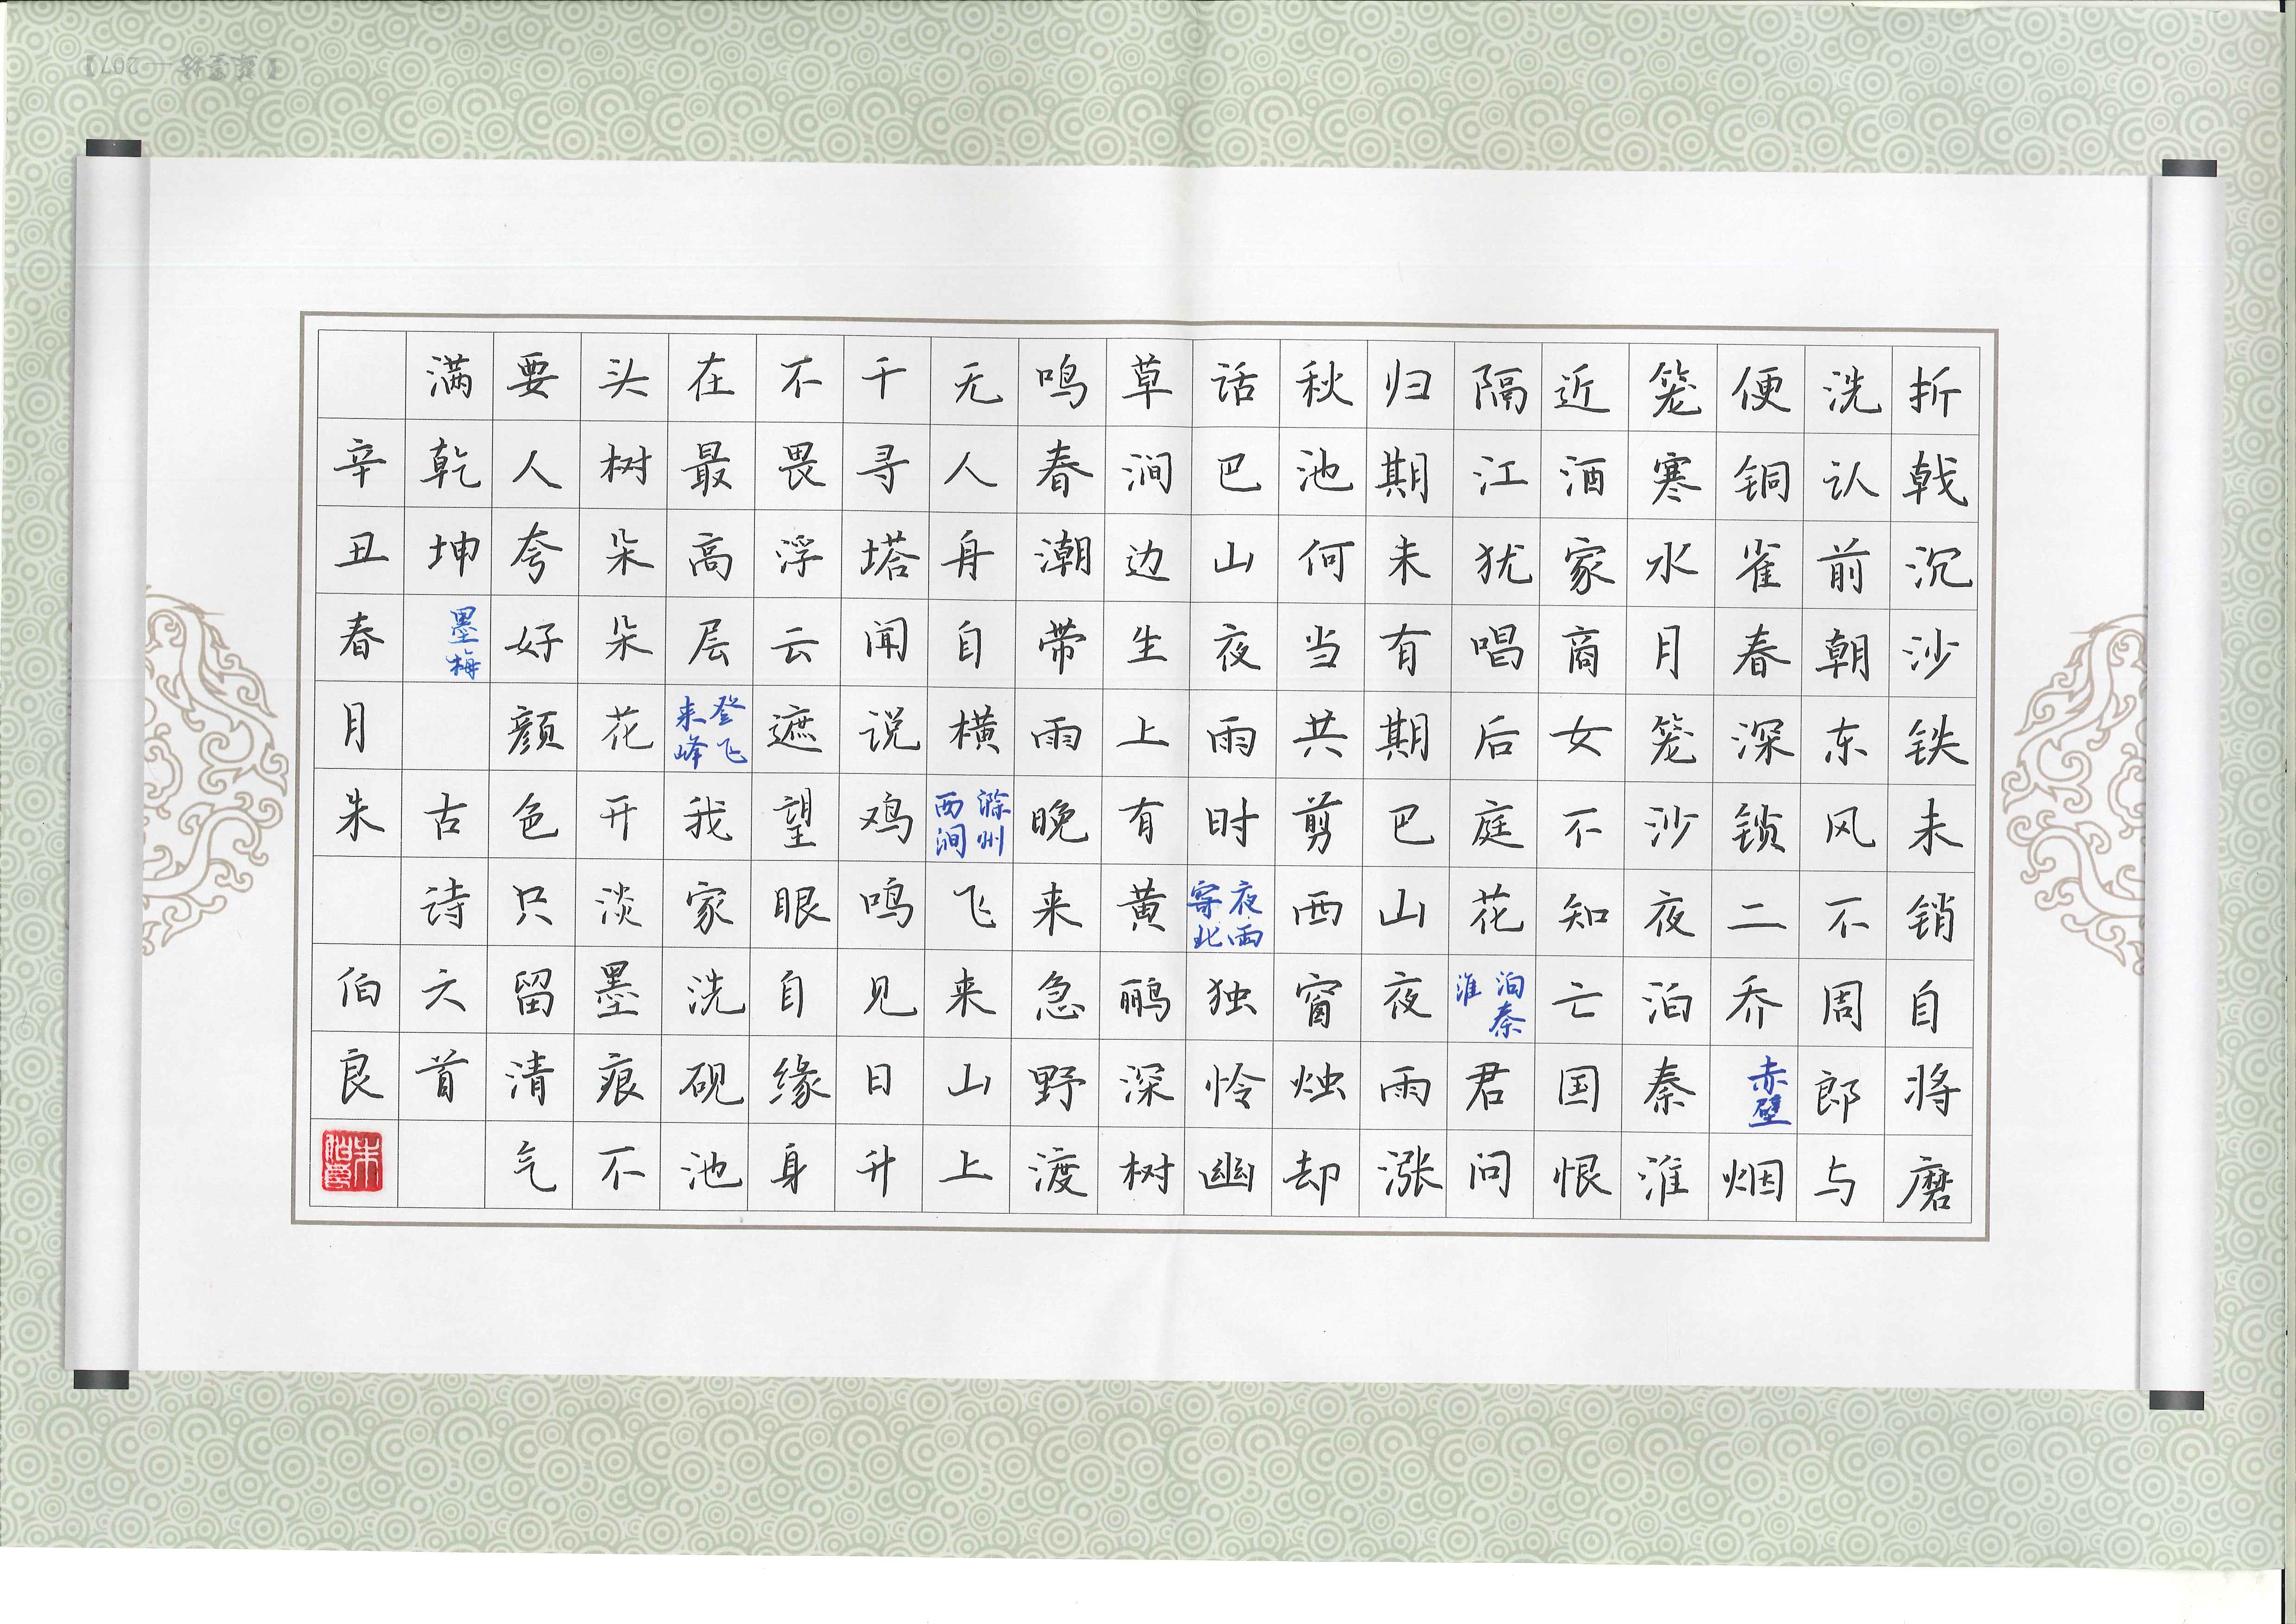 折戟沉沙铁未销自将磨
洗认前朝东风不周郎与
便铜雀春深锁二乔赤壁烟
笼寒水月笼沙夜泊秦淮
近酒家商女不知亡国恨
隔江犹唱后庭花泊秦淮君问
归期未有期巴山夜雨涨
秋池何当共剪西窗烛却
话巴山夜雨时夜雨寄北独怜幽
草涧边生上有黄鹂深树
鸣春潮带雨晚来急野渡
无人舟自横滁州西涧飞来山上
千寻塔闻说鸡鸣见日升
不畏浮云遮望眼自缘身
在最高层登飞来峰我家洗砚池
头树朵朵花开淡墨痕不
要人夸好颜色只留清气
满乾坤墨梅 古诗六首
辛丑春月朱 伯良